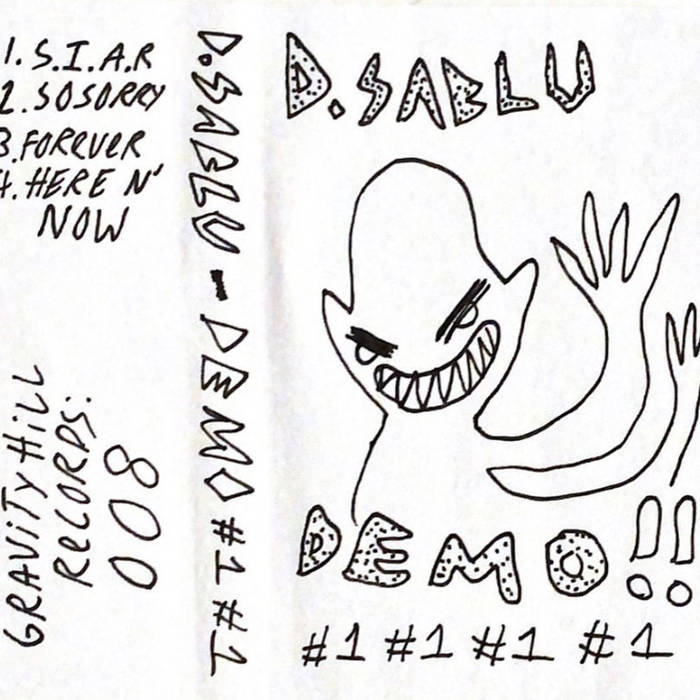 1. S.I.A.R
2. SOSORRY
3. FOREVER
4. HERE N'
NOW
GRAVITY HILL
RECORDS:
008
D.SABLU - DEMO #1 #1
D. SABLU
DEMO!!
#1 #1 #1 #1